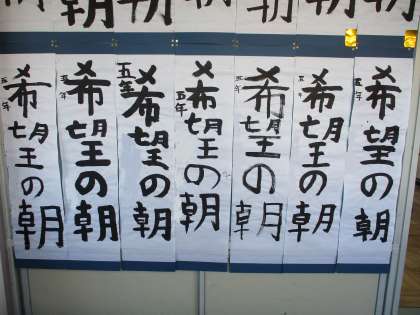 朝
希望の朝
五年
希望の朝
五年
希望の朝
五年
希望の朝
五年
希望の朝
五年
希望の朝
五年
希望の朝
五年